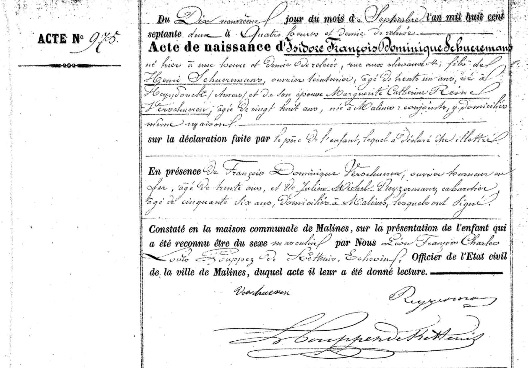 ACTE No 975
Du Dix neuvième jour du mois de Septembre l'an mil huit cent
septante deux à Quatre heures et demie de relevée
Acte de naissance d'Isidore François Dominique Schueremans
né hier à une heure et demie de relevée, rue aux chevaux, fils de
Henri Schueremans, ouvrier teinturier, âgé de trente un ans, né à
(Anvers) et de son épouse Marguerite Catherine Reine
Verschueren, âgée de vingt huit ans, née à Malines conjoints, y domiciliés
même maison
sur la déclaration faite par le père de l'enfant, lequel a déclaré
En présence de François Dominique Verschueren, ouvrier tourneur en
fer, âgé de trente ans, et de Julien Michel cabaretier
âgé de cinquante six ans, domiciliés à Malines, lesquels ont signé
Constaté en la maison communale de Malines, sur la présentation de l'enfant qui
a été reconnu être du sexe masculin par Nous Léon François Charles
Louis de Officier de l'Etat civil
de la ville de Malines, duquel acte il leur a été donné lecture.
Verschueren